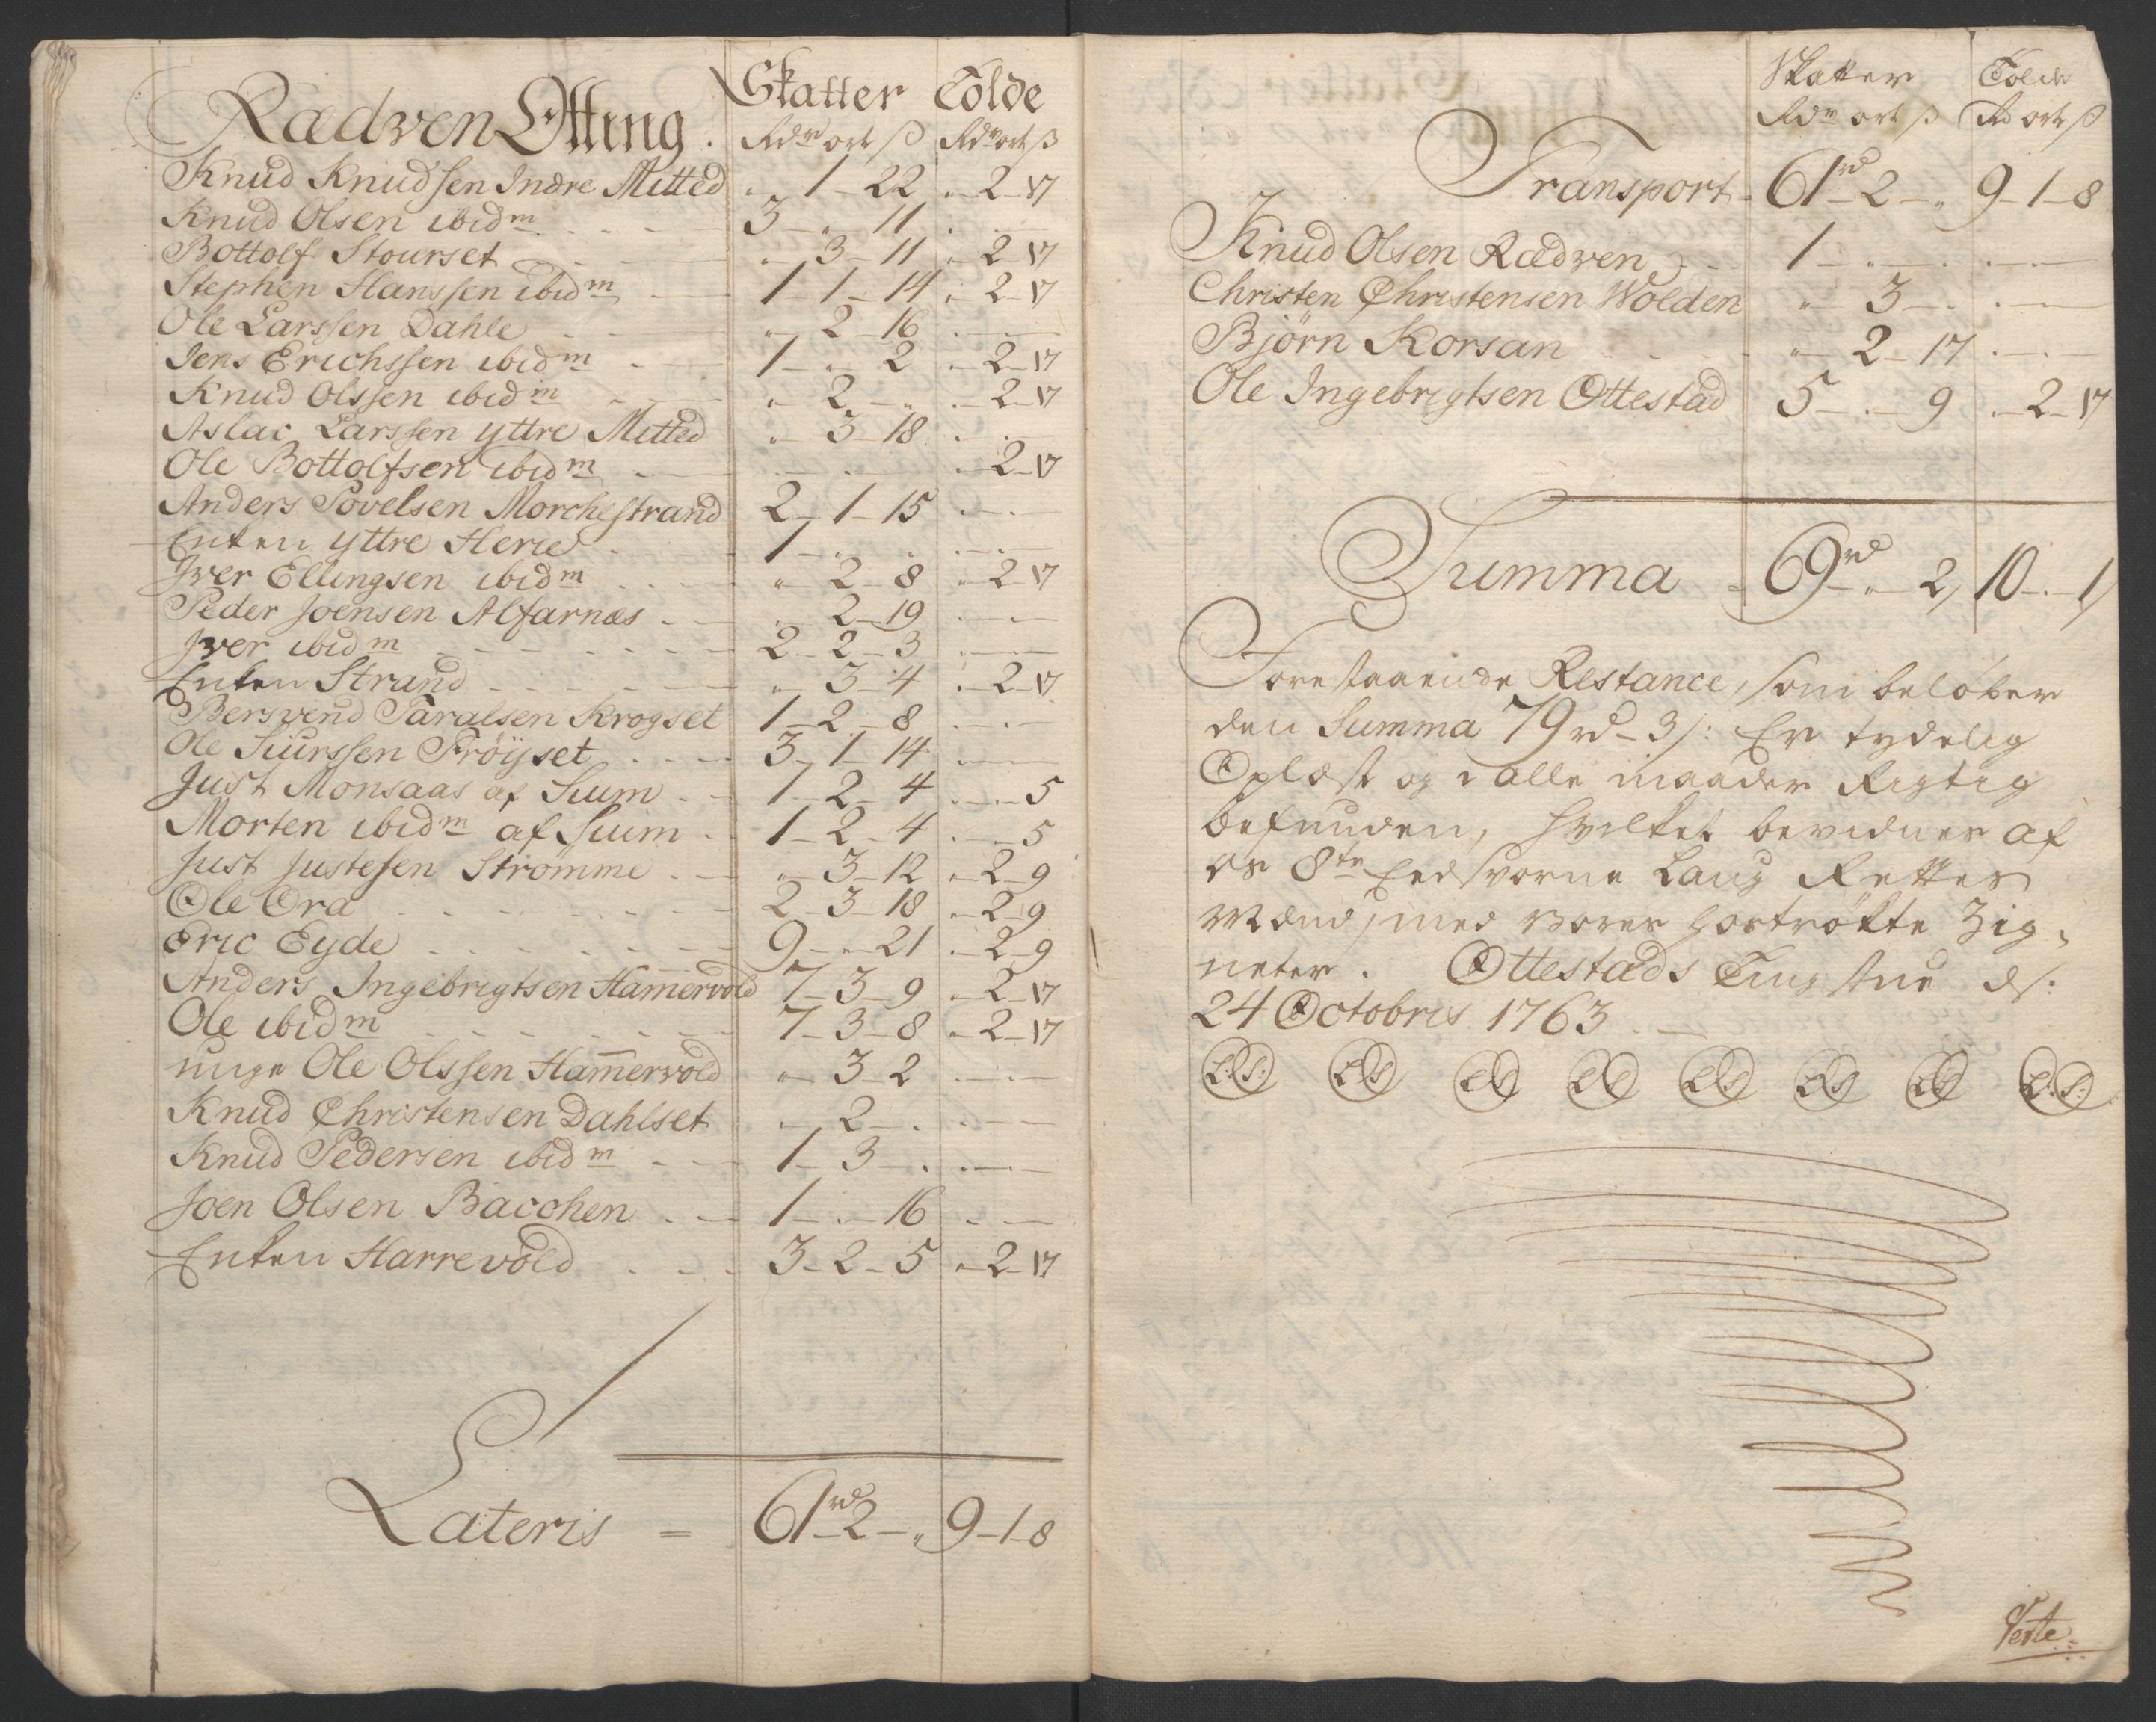 Rædven Otting. Skatter Tolde
Rdr ort ß Rdr ort ß
Knud Knudsen Indre Mitted „ 1 - 22 „ - 2 - 17
Knud Olsen ibidm 3 - „ 11 . - . -
Bottolf Stourset „ - 3 - 11 „ 2 - 17
Stephen Hanssen ibidm 1 - 1 - 14 „ - 2 - 17
Ole Larssen Dahle „ 2 - 16 . - . -
Jens Erichssen ibidm 1 - „ 2 „ - 2 - 17
Knud Olssen ibidm „ 2 - „ „ - 2 - 17
Aslac Larssen yttre Mitted „ - 3 - 18 . - . -
Ole Bottolfsen ibidm . - . - „ - 2 - 17
Anders Povelsen Morchestrand 2 - 1 - 15 . - . -
Enken yttre Herie 1 - „ „ . - . -
Iver Ellingsen ibidm „ 2 - 8 „ - 2 - 17
Peder Joensen Alfarnæs „ 2 - 19 . - . -
Iver ibidm 2 - 2 - 3 . - . -
Enken Strand „ 3 - 4 „ - 2 - 17
Bersvend Taralsen Krogset 1 - 2 - 8 . - . -
Ole Siurssen Fröyset 3 - 1 - 14 . - . -
Just Monsaas af Suum 1 - 2 - 4 . - . - 5
Morten ibidm af Suim 1 - 2 - 4 . - . - 5
Just Justesen Strömme „ - 3 - 12 „ - 2 - 9
Ole Ora 2 - 3 - 18 „ - 2 - 9
Eric Eyde 9 - „ - 21 „ - 2 - 9
Anders Ingebrigtsen Ham̄ervold 7 - 3 - 9 „ - 2 - 17
Ole ibidm 7 - 3 - 8 „ - 2 - 17
unge Ole Olssen Ham̄ervold „ - 3 - 2 . - . -
Knud Christensen Dahlset „ - 2 - . . - . -
Knud Pedersen ibidm 1 - 3 - . . - . -
Joen Olsen Bacchen 1 - . - 16 . - . -
Enken Harrevold 3 - 2 - 5 „ - 2 - 17
Lateris = 61rd - 2 - „ 9 - 1 - 8
Skatter Tolde
Rdr ort ß Rd ort ß
Transport - 61rd - 2 - „ 9 - 1 - 8
Knud Olsen Rædven 1 - „ - . . - . -
Christen Christensen Wolden „ 3 - . . - . -
Björn Korsan „ - 2 - 17 . - . -
Ole Ingebrigtsen Ottestad 5 - . - 9 „ - 2 - 17
Summa - 69rd - „ - 2/ 10 - . - 1/
Forestaaende Restance, som beløber
den Summa 79 rd - 3 /: Er tydelig
Oplæst og i alle maader Rigtig
befunden, hvilket bevidner af
os 8te Eedsvorne Laug Rettes
Mænd, med vores hoströkte Zig,
neter. Ottestads Tingstue ds:
24 Octobris 1763.
L.S: LS LS LS LS LS LS L.S:
Verte